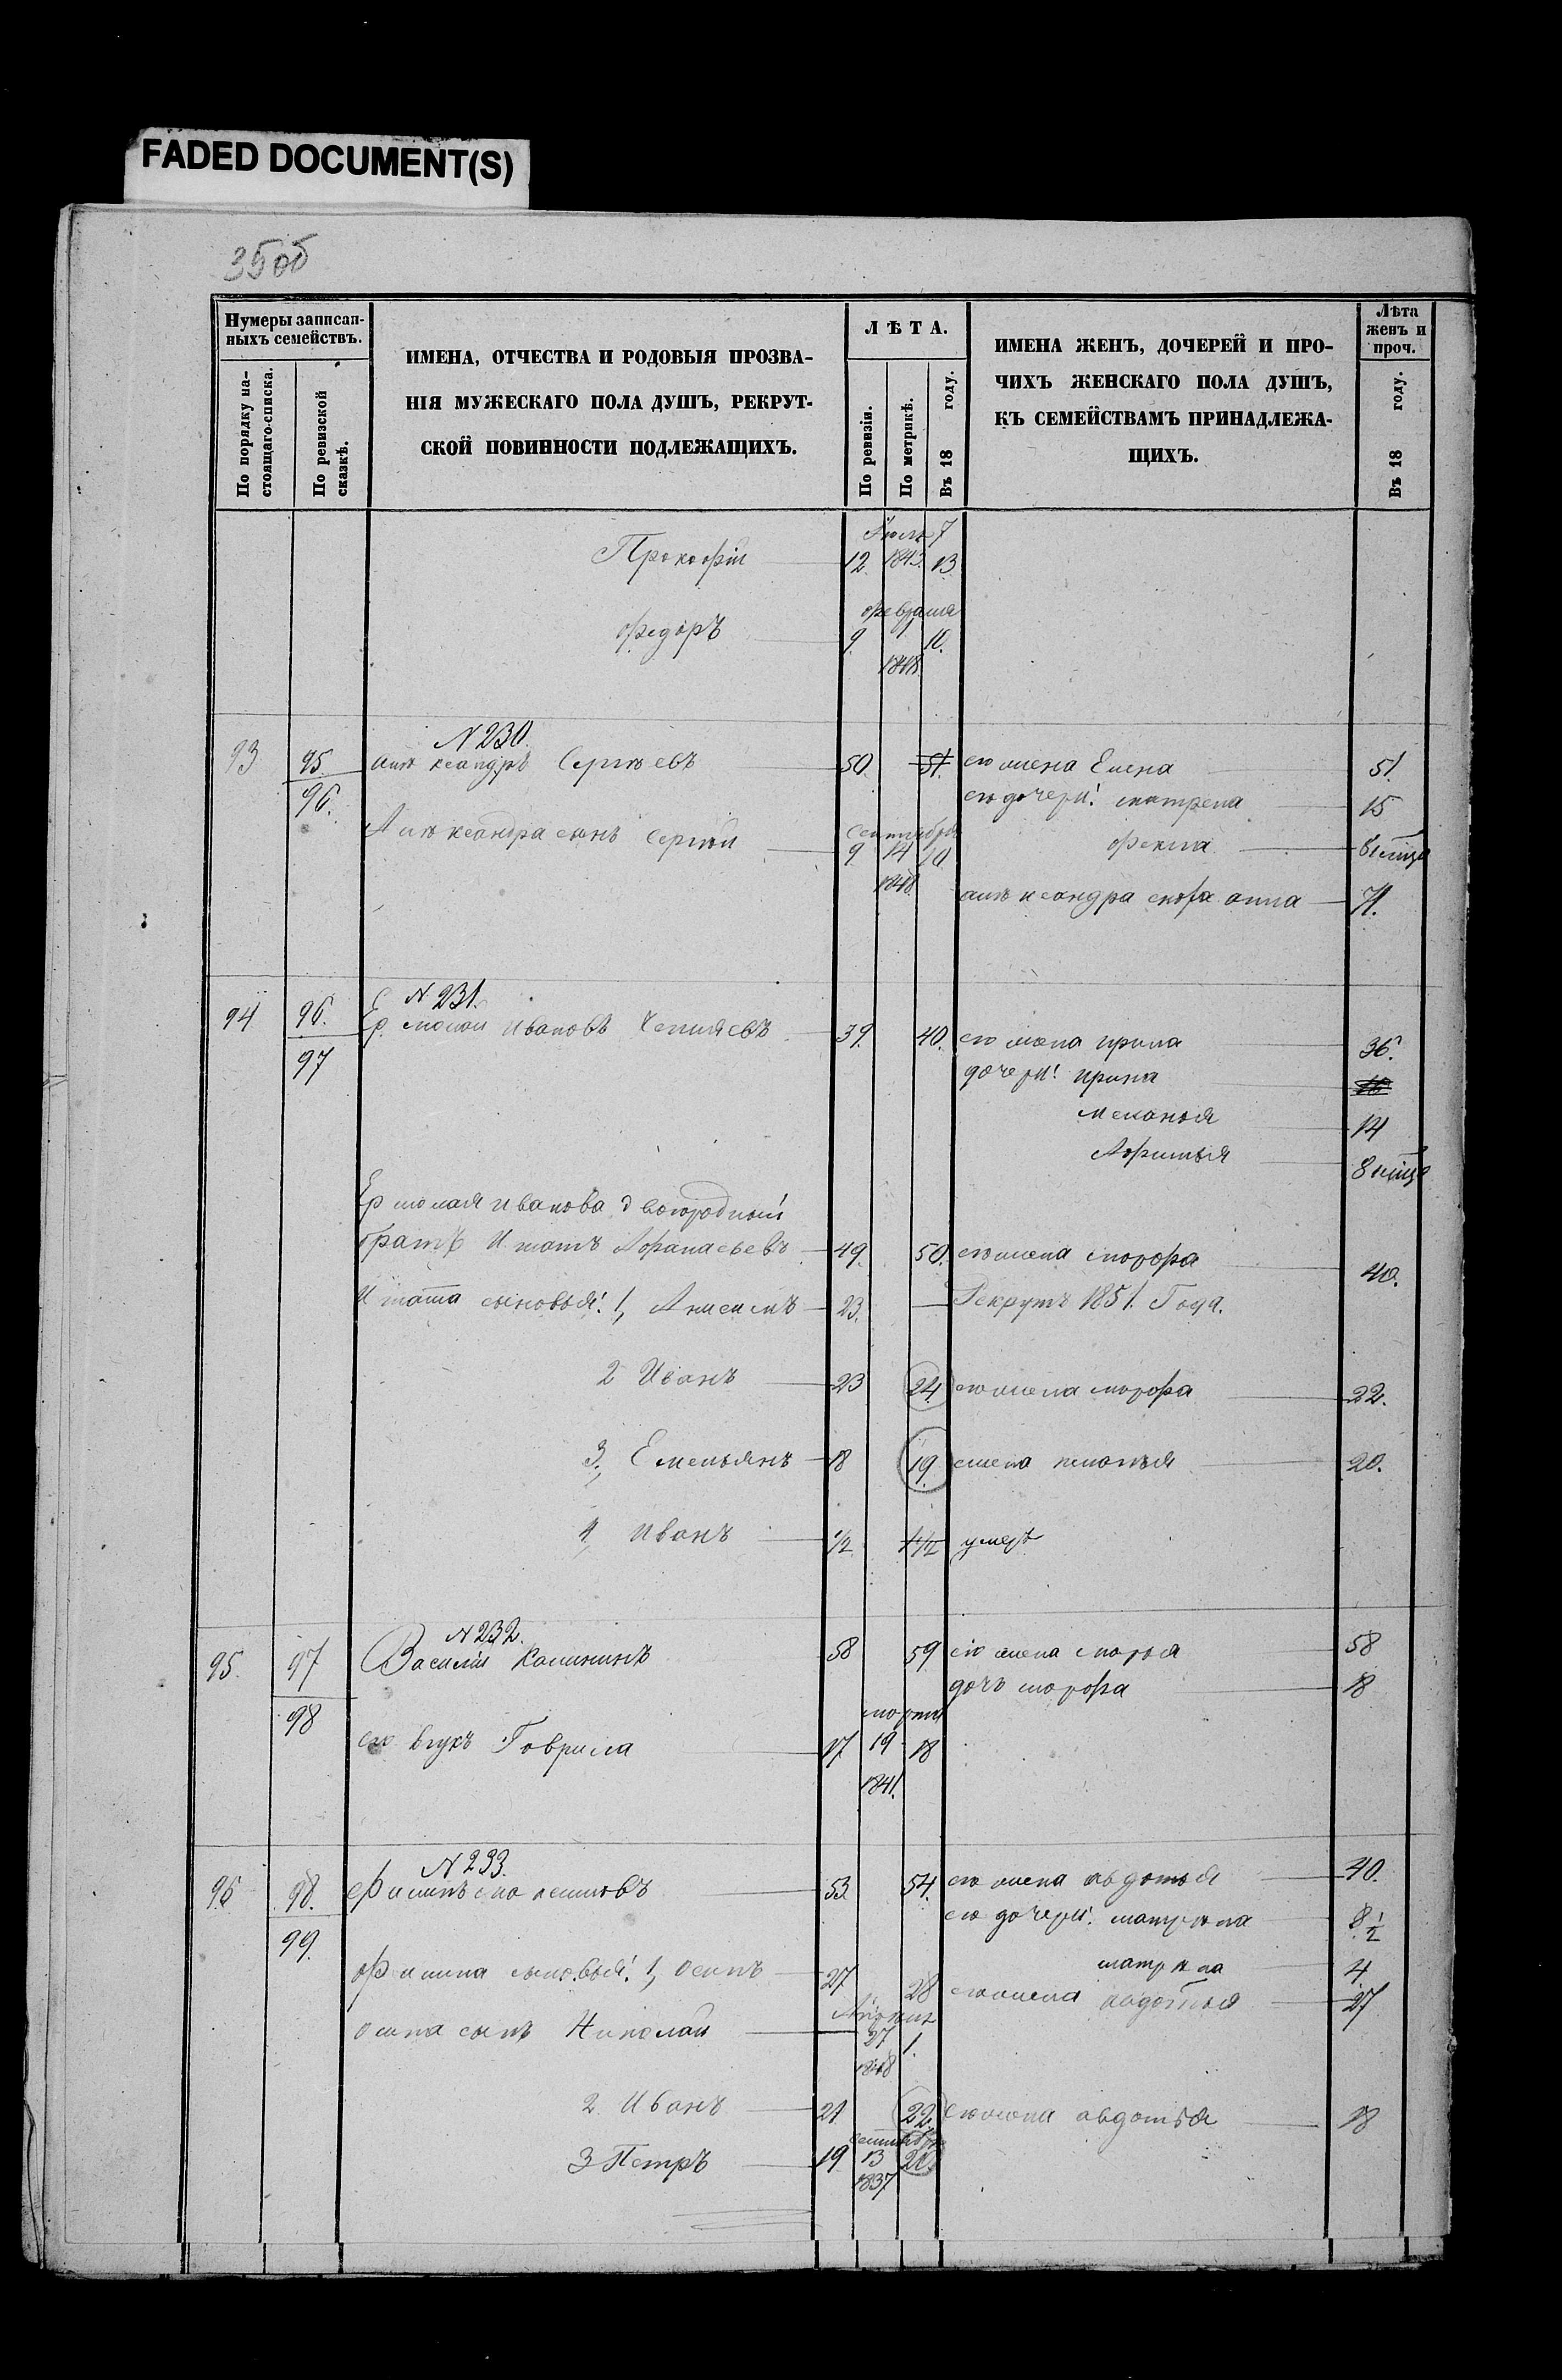 FADED DOCUMENT(S)
35об
Нумеры записан-
ныхъ семействъ.
По порядку на-
стоящаго списка.
По ревизской
сказкѣ.
ИМЕНА, ОТЧЕСТВА И РОДОВЫЯ ПРОЗВА-
НІЯ МУЖЕСКАГО ПОЛА ДУШЪ, РЕКРУТ-
СКОЙ ПОВИННОСТИ ПОДЛЕЖАЩИХЪ.
ЛѢТА.
По ревизіи.
По метрикѣ.
Въ 18 году.
ИМЕНА ЖЕНЪ, ДОЧЕРЕЙ И ПРО-
ЧИХЪ ЖЕНСКАГО ПОЛА ДУШЪ,
КЪ СЕМЕЙСТВАМЪ ПРИНАДЛЕЖА-
ЩИХЪ.
Лѣта
женъ и
проч.
Въ 18 году.
Іюля 7
Прокофій 12. 1845. 13
февраля
федоръ 9 10.
1848
N 230.
93 95. алѣксандръ Сергѣевъ 50. 51. его жена Елена 51.
96. его дочери: матрена 15
Алѣксандра сынъ Сергѣй сентября 9 14 10 фекла
1848. алѣксандра анна 71.
N 231.
94 96. Ермолай Ивановъ 39. 40. его жена ирина 36.
97 дочери: ирина 16
меланья 14
8
Ермолая иванова двоюродный
братъ Игнатъ Афанасьевъ 49. 50. его жена 40.
Игната сыновья: 1, Анисимъ 23. Рекрутъ 1851. Года.
2 Иванъ 23 24 его жена 22.
3, Емельянъ 18 19. жена 20.
4, Иванъ 1/2 1 1/2 умеръ
N 232.
95. 97 Василій Калининъ 58 59 его жена марья 58
дочь 18
98 его внукъ Гаврила 17 марта 19 18
1841.
N 233.
96 98. Филипъ 53 54. его жена авдотья 40.
99. его дочери: матрена 8 1/2
матрена 4
филипа сыновья: 1, Осипъ 27 28 его жена авдотья 27
осипа сынъ Николай 27 1.
2. Иванъ 21 22. его жена авдотья 18
3 Петръ 19 сентября 13 20.
1837